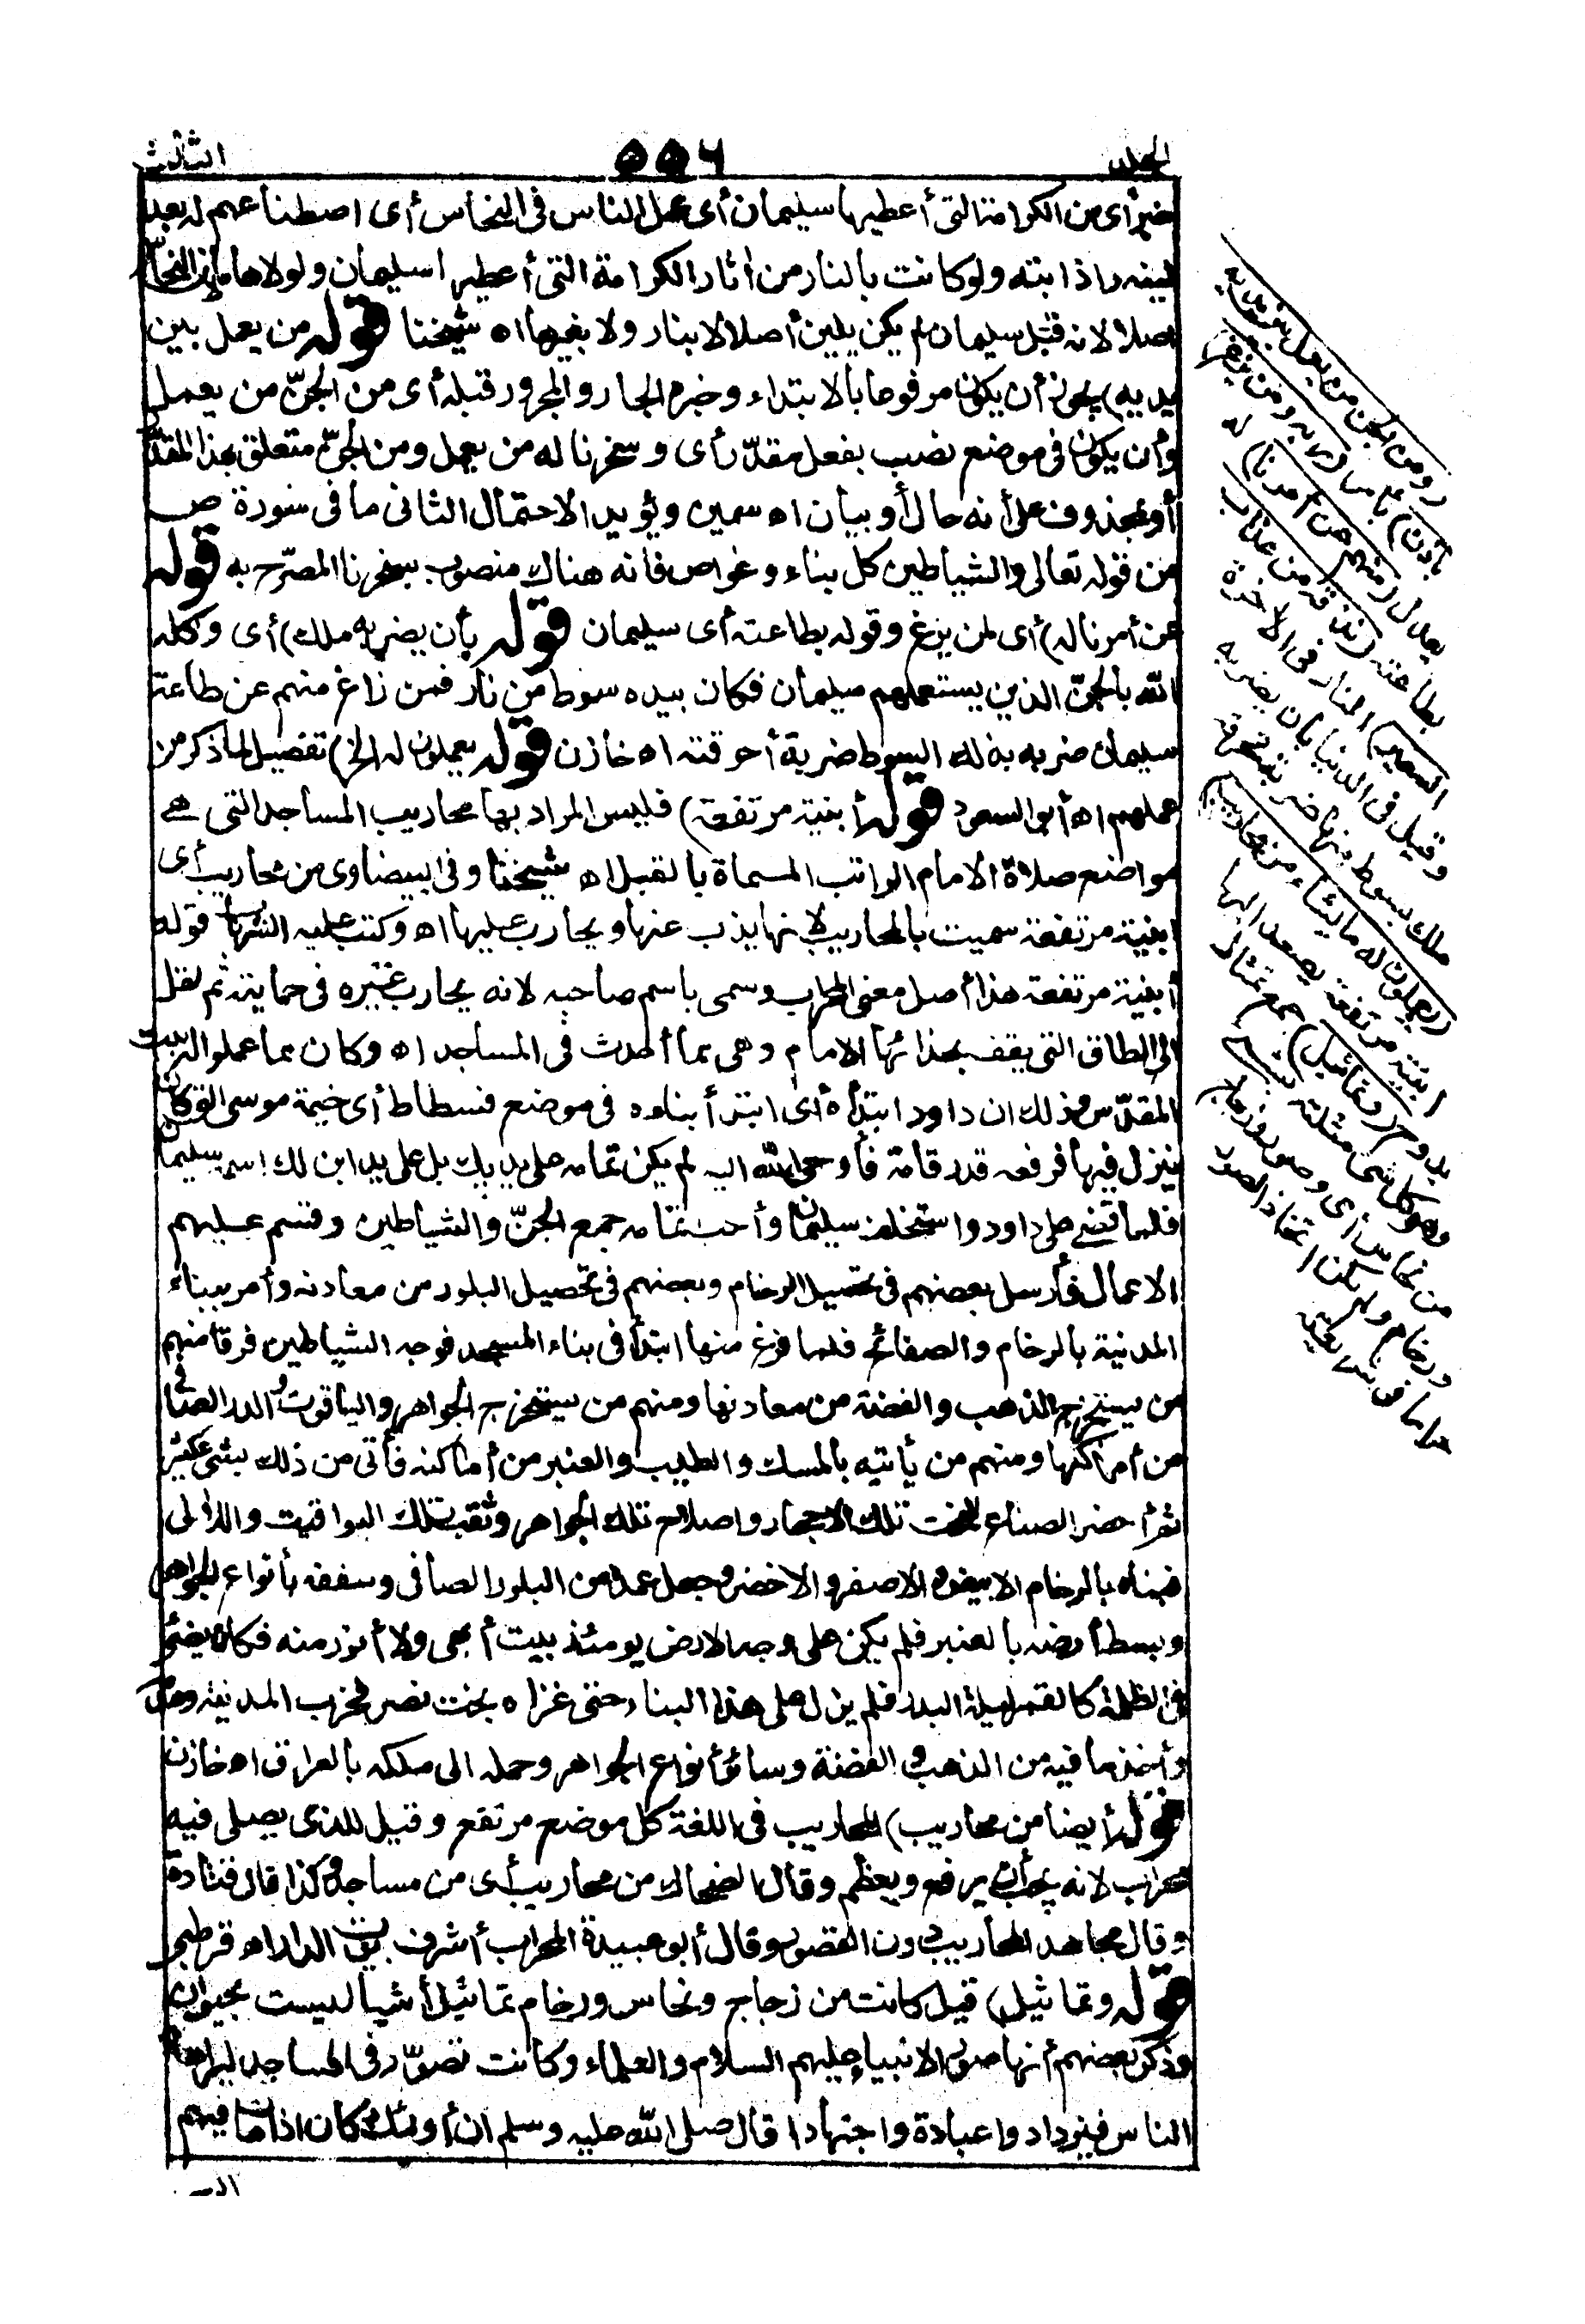 الجلد ٥٥٦ الثالث
خبر أى من الكرامة التى أعطيها سليمان أى عمل الناس فى النحاس أى اصطناعهم له بعد
لينه واذابته ولو كانت بالنار من أثار الكرامة التى أعطيها سليمان ولولاها ما لان النحاس
أصلا لانه قبل سليمان لم يكن يلين أصلا لا بنار ولا بغيرها اه شيخنا قوله من يعمل بين
يديه) يجوز أن يكون مرفوعا بالابتداء وخبره الجار والمجرور قبله أى من الجنّ من يعمل
وأن يكون فى موضع نصب بفعل مقدّر أى وسخرنا له من يعمل ومن الجنّ متعلق بهذا المقدّر
أو بمحذوف على أنه حال أو بيان اه سمين ويؤيد الاحتمال الثانى ما فى سورة ص
من قوله تعالى والشياطين كل بناء وغواص فانه هناك منصوب بسخرنا المصرّح به قوله
عن أمرنا له) أى لمن يزغ وقوله بطاعته أى سليمان قوله بأن يضربه ملك) أى وكله
الله بالجنّ الذين يستعملهم سليمان فكان بيده سوط من نار فمن زاغ منهم عن طاعة
سليمان ضربه بذلك السوط ضربة أحرقته اه خازن قوله يعملون له الخ) تفصيل لما ذكر من
عملهم اه أبو السعود قوله أبنية مرتفعة) فليس المراد بها محاريب المساجد التى هى
مواضع صلاة الامام الراتب المسماة بالقبل اه شيخنا وفى البيضاوى من محاريب أى
ابنية مرتفعة سميت بالمحاريب لانها يذب عنها ويحارب عليها اه وكتب عليه الشهاب قوله
أبنية مرتفعة هذا أصل معنى المحراب وسمى باسم صاحبه لانه يحارب غيره فى حمايته ثم نقل
الى الطاق التى يقف بحذائها الامام وهى مما أحدث فى المساجد اه وكان مما عملوا له بيت
المقدّس وذلك ان داود ابتدأه أى ابتدأ بناءه فى موضع فسطاط أى خيمة موسى التى كان
ينزل فيها فرفعه قدر قامة فأوحى الله اليه لم يكن تمامه على يديك بل على يد ابن لك اسمه سليمان
فلما قضى على داود واستخلف سليمان وأحب اتمامه جمع الجنّ والشياطين وقسم عليهم
الاعمال فأرسل بعضهم فى تحصيل الرخام وبعضهم فى تحصيل البلور من معادنه وأمر ببناء
المدينة بالرخام والصفائح فلما فرغ منها ابتدأ فى بناء المسجد فوجه الشياطين فرقا منهم
من يستخرج الذهب والفضة من معادنها ومنهم من يستخرج الجواهر والياقوت والدر الصافى
من أماكنها ومنهم من يأتيه بالمسك والطيب والعنبر من أماكنه فأتى من ذلك بشئ كثير
ثم أحضر الصناع لنحت تلك الاحجار واصلاح تلك الجواهر وثقب تلك اليواقيت واللآلى
فبناه بالرخام الابيض والاصفر والاخضر وجعل عمده من البلور الصافى وسقفه بأنواع الجواهر
وبسط أرضه بالعنبر فلم يكن على وجه الارض يومئذ بيت أبهى ولا أنور منه فكان يضئ
فى الظلمة كالقمر ليلة البدر فلم يزل على هذا البناء حتى غزاه بخت نصر فخرب المدينة وهدمه
وأخذ ما فيه من الذهب والفضة وسائر أنواع الجواهر وحمله الى ملكه بالعراق اه خازن
قوله أيضا من محاريب) المحاريب فى اللغة كل موضع مرتفع وقيل للذى يصلى فيه
محراب لانه يجب أن يرفع ويعظم وقال الضحاك من محاريب أى من مساجد وكذا قال قتادة
وقال مجاهد المحاريب دون القصور وقال أبو عبيدة المحراب أشرف بيوت الدار اه قرطبى
قوله وتماثيل) قيل كانت من زجاج ونحاس ورخام تماثيل أشيا ليست بحيوان
وذكر بعضهم أنها صور الانبياء عليهم السلام والعلماء وكانت تصوّر فى المساجد ليراها
الناس فيزدادوا عبادة واجتهادا قال صلى الله عليه وسلم ان أولئك كان اذا مات فيهم
(ومن الجن من يعمل بين يديه
باذن) بأمر (ربه ومن يزغ)
يعدل (منهم عن أمرنا) له
بطاعته (نذقه من عذاب
السعير) النار فى الاخرة
وقيل فى الدنيا بأن يضربه
ملك بسوط منها ضربة تحرقه
(يعملون له ما يشاء من محاريب)
ابنية مرتفعة يصعد اليها
بدرج (وتماثيل) جمع تمثال
وهو كل شئ مثلته بشئ
من نحاس أى وصور وزجاج
ورخام ولم يكن اتخاذ الصور
حراما فى شريعته